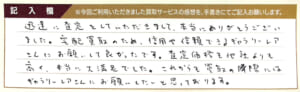 記入欄 ※今回ご利用いただきました買取サービスの感想を、手書きにてご記入お願いします。
迅速に査定をしていただきまして、本当にありがとうございました。
宅配買取のため、信用や信頼できるギャラリーレア
さんにお願いして良かったです。査定価格も他社よりも
高く、本当に大満足でした。これからも買取の機会には
ギャラリーレアさんにお願いしたいと思っております。